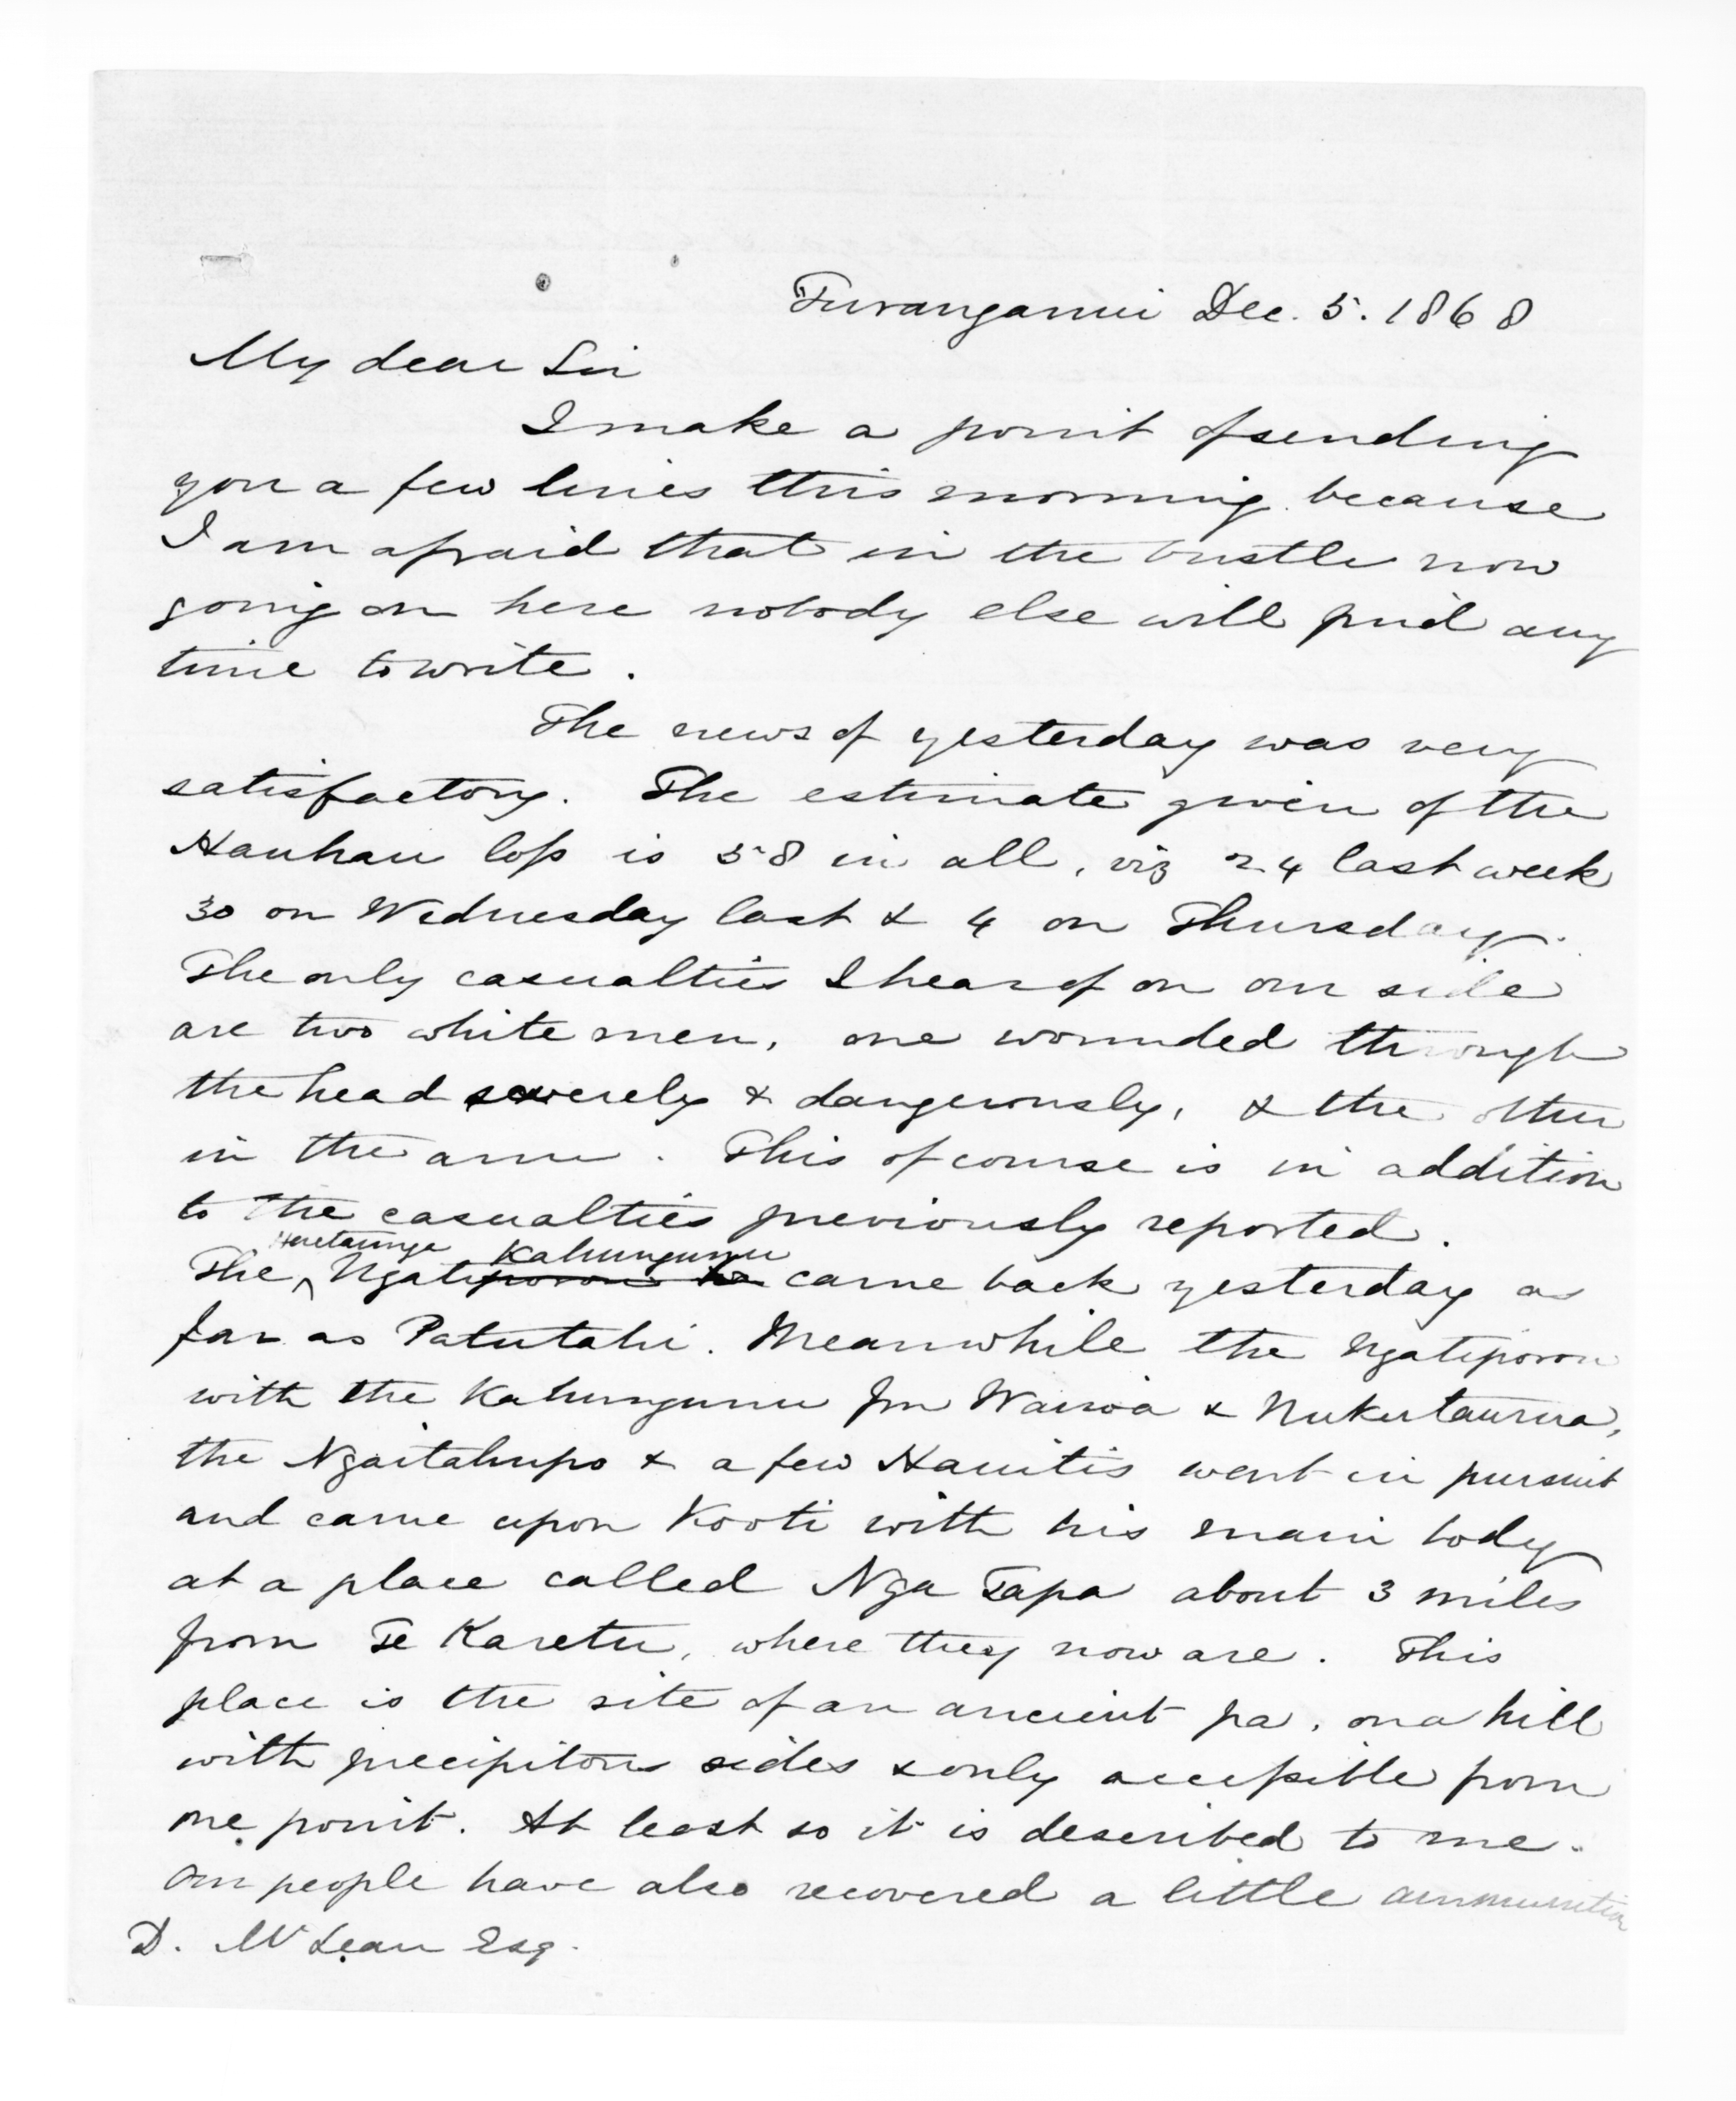 Turanganui Dec. 5. 1868
My dear Sir
I make a point of sending
you a few lines this morning because
I am afraid that in the bustle now
going on here nobody else will find any
time to write.
The news of yesterday was very
satisfactory. The estimate given of the
Hauhau loss is 58 in all, viz 24 last week
30 on Wednesday last & 4 on Thursday.
The only casualties I hear of on our side
are two white men, one wounded through
the head severely & dangerously, & the other
in the arm. This of course is in addition
to the casualties previously reported.
Heretaunga Kahungunu
The Ngatiporou ha came back yesterday as
far as Patutahi. Meanwhile the Ngatiporou
with the Kahungunu fm Wairoa & Nukutaurua,
the Ngaitahupo & a few Hauitis went in pursuit
and came upon Kooti with his main body
at a place called Nga Tapa about 3 miles
from Te Karetu, where they now are. This
place is the site of an ancient pa, on a hill
with precipitous sides & only accessible from
one point. At least so it is described to me.
Our people have also recovered a little ammunition
D. McLean Esq.